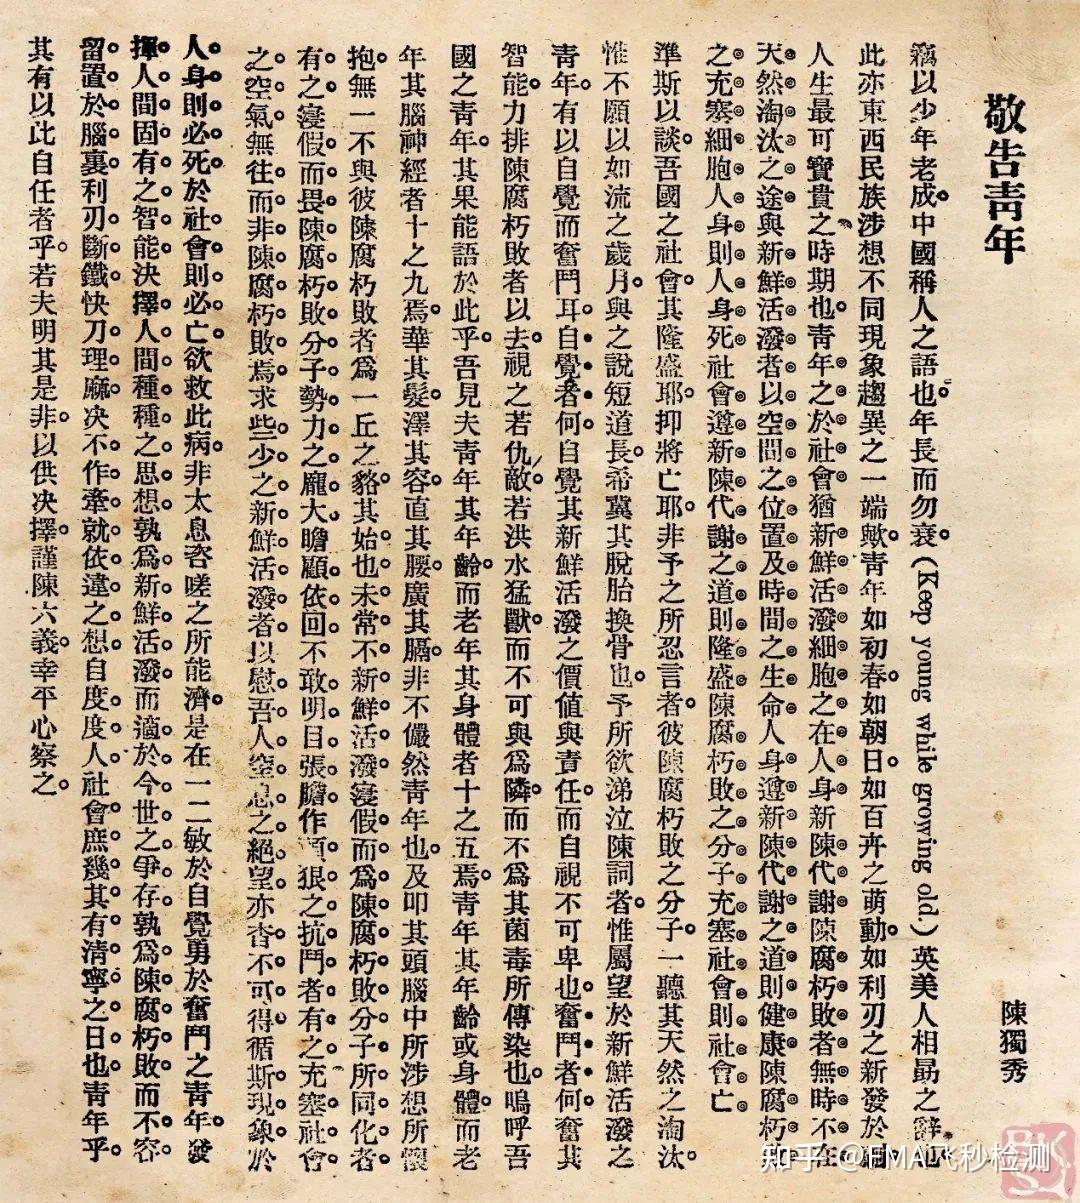 敬告靑年
陳獨秀
竊以少年老成。中國稱人之語也。年長而勿衰。(Keep young while growing old.)英美人相勗之辭也。
此亦東西民族涉想不同現象趨異之一端歟。靑年如初春。如朝日。如百卉之萌動。如利刃之新發於硎。
人生最可寶貴之時期也。靑年之於社會猶新鮮活潑細胞之在人身新陳代謝陳腐朽敗者無時不在
天然淘汰之途與新鮮活潑者以空間之位置及時間之生命人身遵新陳代謝之道則健康陳腐朽敗
之充塞細胞人身則人身死社會遵新陳代謝之道則隆盛陳腐朽敗之分子充塞社會則社會亡
準斯以談。吾國之社會。其隆盛耶。抑將亡耶。非予之所忍言者。彼陳腐朽敗之分子。一聽其天然之淘汰。
惟不願以如流之歲月。與之說短道長。希冀其脫胎換骨也。予所欲涕泣陳詞者。惟屬望於新鮮活潑之
靑年。有以自覺而奮鬥耳。自覺者何。自覺其新鮮活潑之價值與責任。而自視不可卑也。奮鬥者何。奮其
智能。力排陳腐朽敗者以去。視之若仇敵。若洪水猛獸。而不可與爲隣。而不爲其菌毒所傳染也。嗚呼吾
國之靑年。其果能語於此乎。吾見夫靑年其年齡。而老年其身體者十之五焉。靑年其年齡或身體。而老
年其腦神經者十之九焉。華其髮。澤其容。直其腰。廣其膈。非不儼然靑年也。及叩其頭腦中所涉想所懷
抱。無一不與彼陳腐朽敗者爲一丘之貉。其始也未常不新鮮活潑。寖假而爲陳腐朽敗分子所同化者
有之。寖假而畏陳腐朽敗分子勢力之龐大。瞻顧依回。不敢明目張膽。作頑狠之抗鬥者有之。充塞社會
之空氣。無往而非陳腐朽敗焉。求些少之新鮮活潑者。以慰吾人窒息之絕望。亦杳不可得。循斯現象。於
人身則必死。於社會則必亡。欲救此病。非太息咨嗟之所能濟。是在一二敏於自覺勇於奮鬥之靑年。發
揮人間固有之智能。決擇人間種種之思想。孰爲新鮮活潑而適於今世之爭存。孰爲陳腐朽敗而不容
留置於腦裏。利刃斷鐵。快刀理麻。决不作牽就依違之想。自度度人。社會庶幾其有清寧之日也。靑年乎。
其有以此自任者乎。若夫明其是非。以供决擇。謹陳六義。幸平心察之。
知乎 @FMA飞秒检测